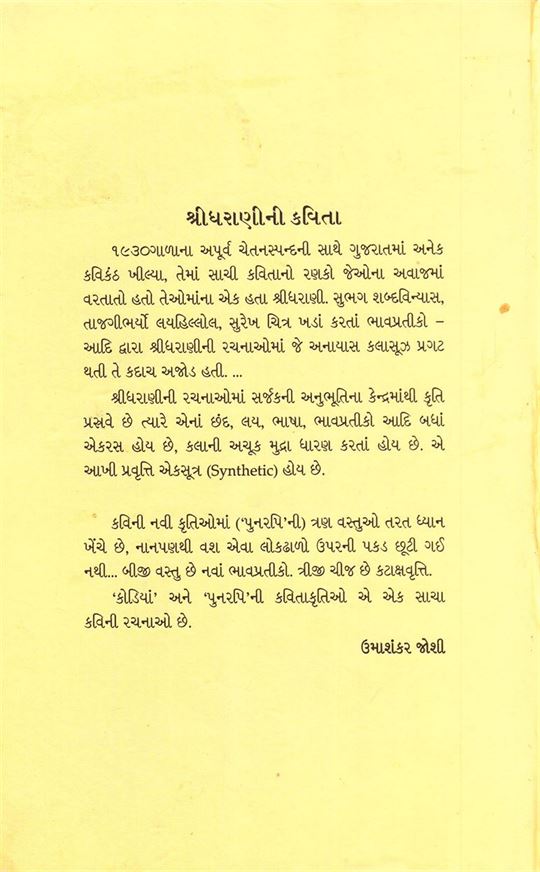 શ્રીધરાણીની કવિતા
૧૯૩૦ગાળાના અપૂર્વ ચેતનસ્પન્દની સાથે ગુજરાતમાં અનેક
કવિકંઠ ખીલ્યા, તેમાં સાચી કવિતાનો રણકો જેઓના અવાજમાં
વરતાતો હતો તેઓમાંના એક હતા શ્રીધરાણી. સુભગ શબ્દવિન્યાસ,
તાજગીભર્યો લયહિલ્લોલ, સુરેખ ચિત્ર ખડાં કરતાં ભાવપ્રતીકો –
આદિ દ્વારા શ્રીધરાણીની રચનાઓમાં જે અનાયાસ કલાસૂઝ પ્રગટ
થતી તે કદાચ અજોડ હતી. ...
શ્રીધરાણીની રચનાઓમાં સર્જકની અનુભૂતિના કેન્દ્રમાંથી કૃતિ
પ્રસવે છે ત્યારે એનાં છંદ, લય, ભાષા, ભાવપ્રતીકો આદિ બધાં
એકરસ હોય છે, કલાની અચૂક મુદ્રા ધારણ કરતાં હોય છે. એ
આખી પ્રવૃત્તિ એકસૂત્ર (Synthetic) હોય છે.
કવિની નવી કૃતિઓમાં (‘પુનરપિ’ની) ત્રણ વસ્તુઓ તરત ધ્યાન
ખેંચે છે, નાનપણથી વશ એવા લોકઢાળો ઉપરની પકડ છૂટી ગઈ
નથી... બીજી વસ્તુ છે નવાં ભાવપ્રતીકો. ત્રીજી ચીજ છે કટાક્ષવૃત્તિ.
‘કોડિયાં’ અને ‘પુનરપિ’ની કવિતાકૃતિઓ એ એક સાચા
કવિની રચનાઓ છે.
ઉમાશંકર જોશી